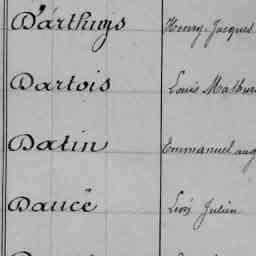 D'arthuys Henry Jacques
Dartois Louis Mathur
Datin Emmanuel aug
Daucë Léon Julien